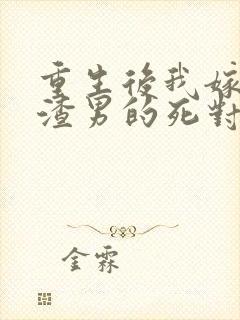 重生後我嫁
渣男的死對
金霖